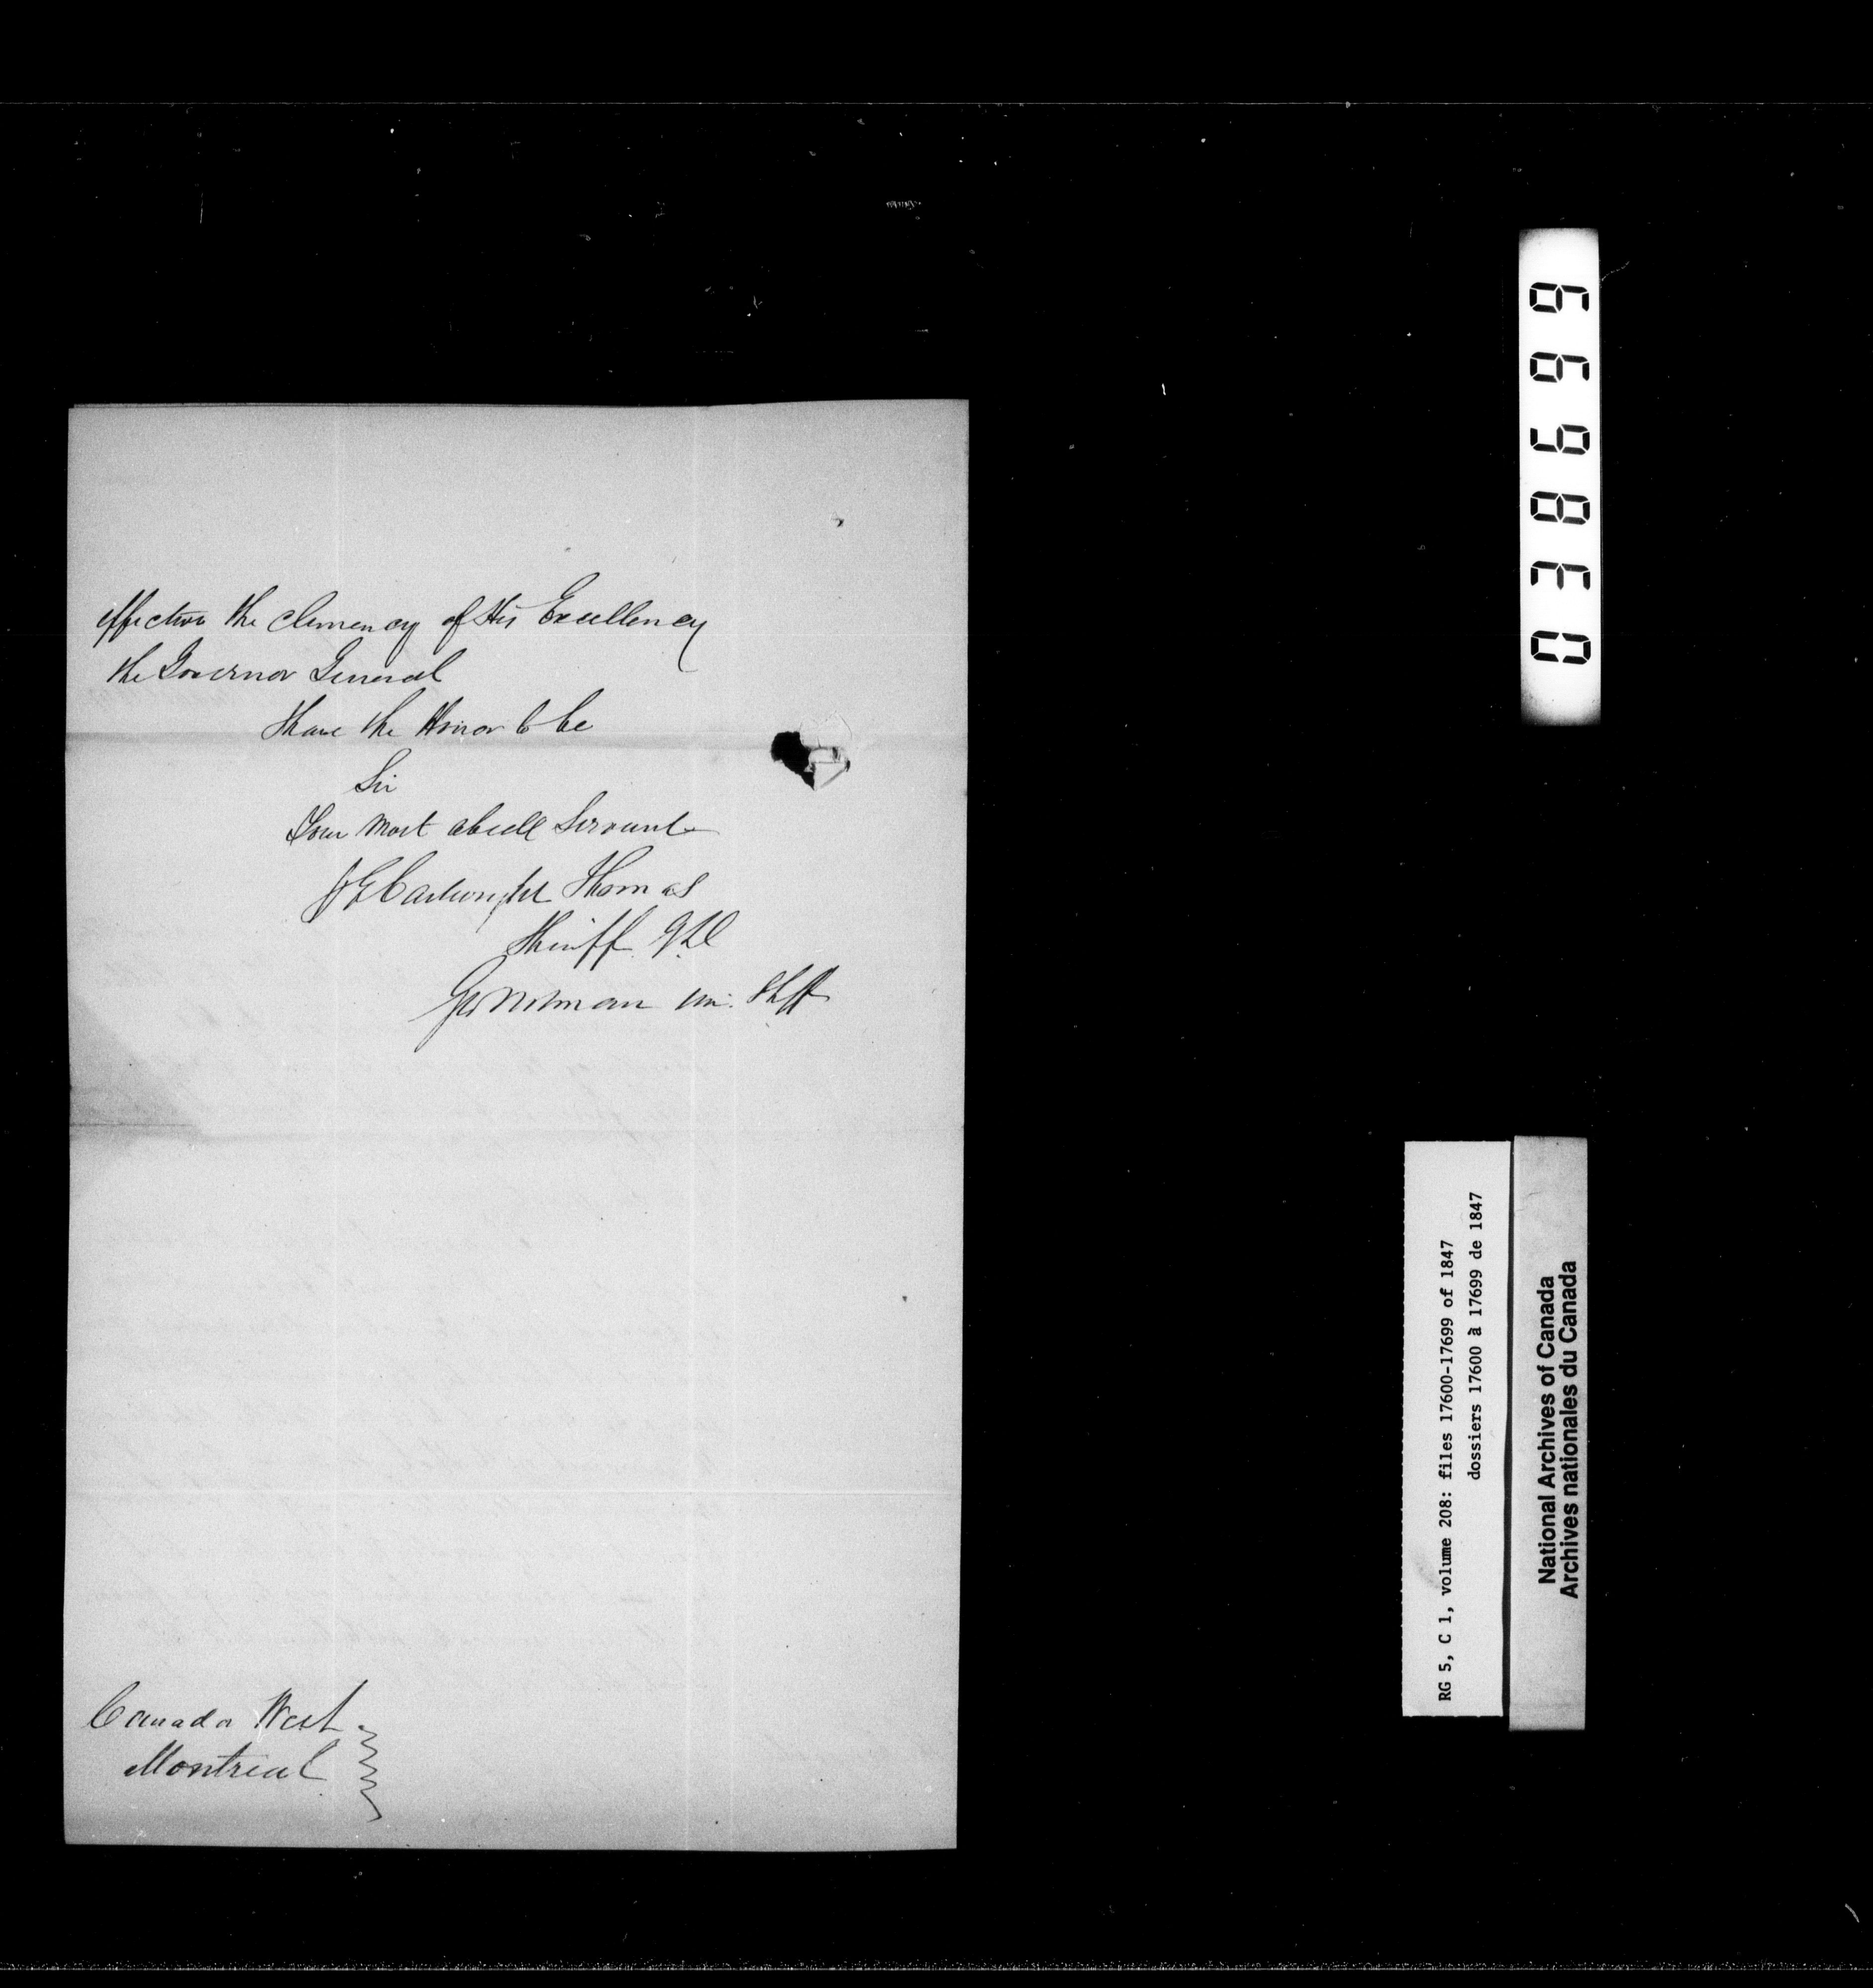 effective the clemency of His Excellency
the Governor General
I have the Honor to be
Sir
Your most obedt Servant
Cartwright Thomas
Sheriff
Canada West
Montreal
038699
RG 5, C 1, volume 208: files 17600-17699 of 1847
dossiers 17600 à 17699 de 1847
National Archives of Canada
Archives nationales du Canada